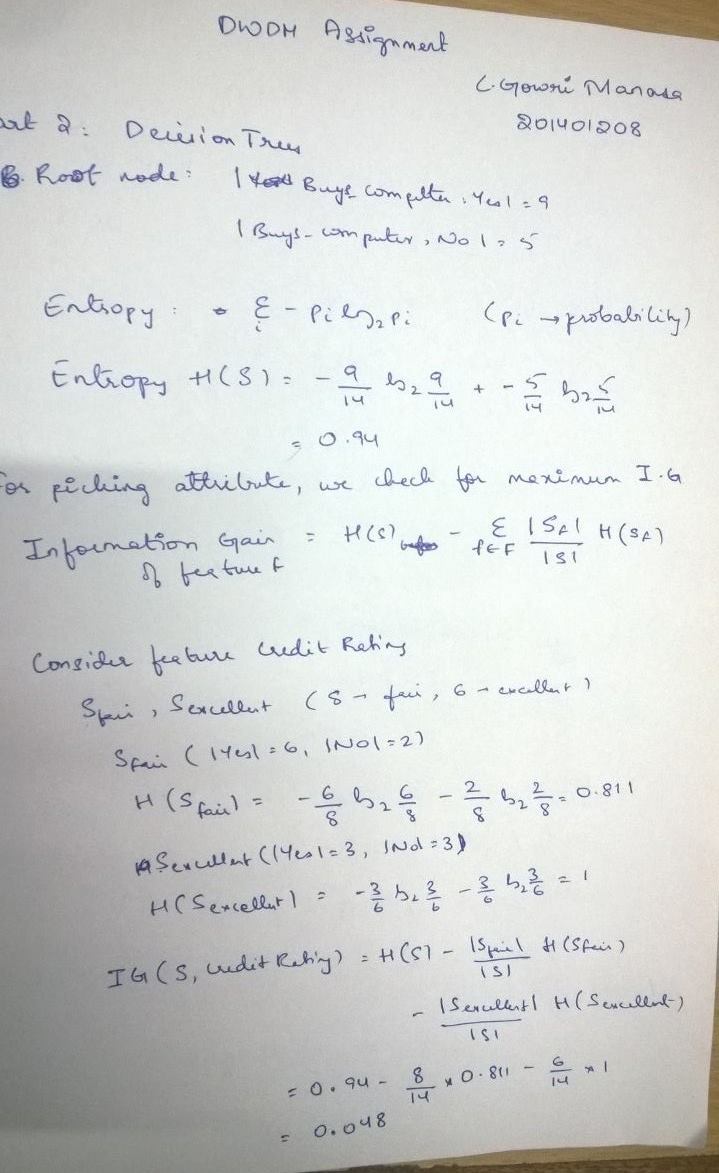 DWDM Assignment
L. Gowri Manasa
201401208
art 2: Decision Trees
Root node: | Buys computer, Yes| = 9
| Buys-computer, No | = 5
Entropy : Σ i - Pi log₂ Pi (Pi → probability)
Entropy H(S) = - 9/14 log₂ 9/14 + - 5/14 log₂ 5/14
= 0.94
For picking attribute, we check for maximum I.G
Information Gain = H(S) - Σ f∈F |Sf|/|S| H(Sf)
of feature f
Consider feature Credit Rating
Sfair, Sexcellent (8 → fair, 6 → excellent)
Sfair (|Yes| = 6, |No| = 2)
H(Sfair) = - 6/8 log₂ 6/8 - 2/8 log₂ 2/8 = 0.811
Sexcellent (|Yes| = 3, |No| = 3)
H(Sexcellent) = - 3/6 log₂ 3/6 - 3/6 log₂ 3/6 = 1
IG(S, Credit Rating) = H(S) - |Sfair|/|S| H(Sfair)
- |Sexcellent|/|S| H(Sexcellent)
= 0.94 - 8/14 * 0.811 - 6/14 * 1
= 0.048